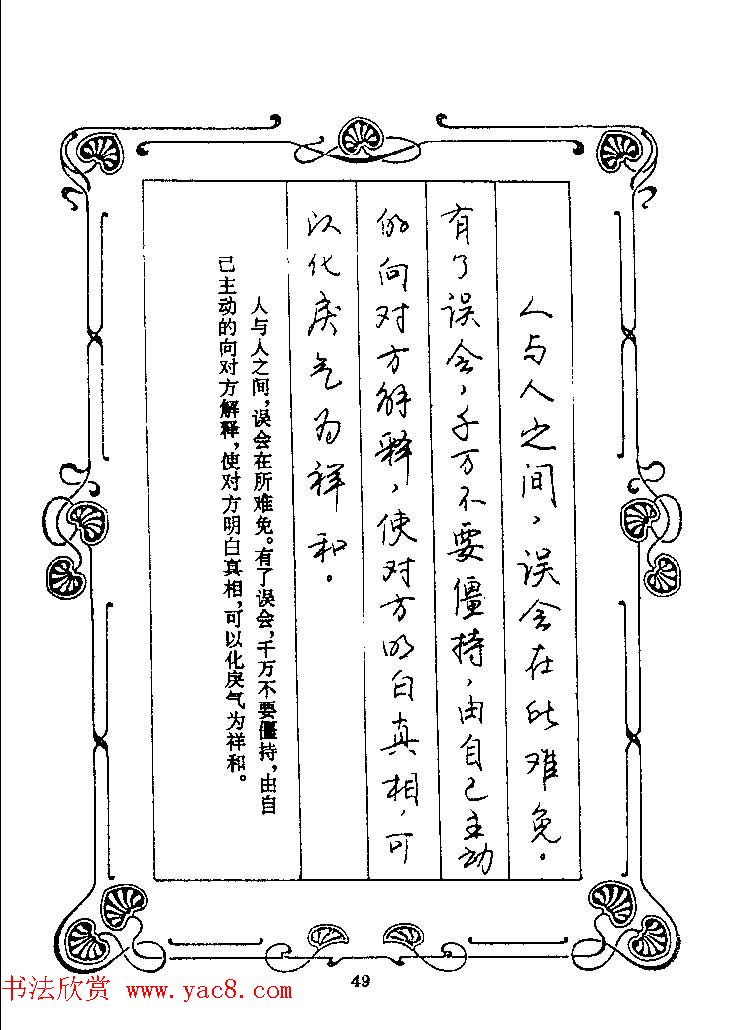 人与人之间，误会在所难免。
有了误会，千万不要僵持，由自己主动
的向对方解释，使对方明白真相，可
以化戾气为祥和。
人与人之间，误会在所难免。有了误会，千万不要僵持，由自
己主动的向对方解释，使对方明白真相，可以化戾气为祥和。
49
书法欣赏 www.yac8.com